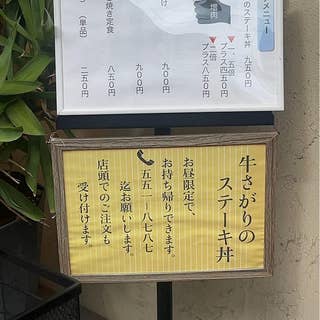 メニュー
のステーキ丼 九五〇円
増肉
▼一.五倍
プラス四五〇円
▼二倍
プラス八五〇円
け 九〇〇円
九〇〇円
焼き定食 八五〇円
(単品) 二五〇円
牛さがりの
ステーキ丼
お昼限定で、
お持ち帰りできます。
五五一-八七八七
迄お願いします。
店頭でのご注文も
受け付けます。